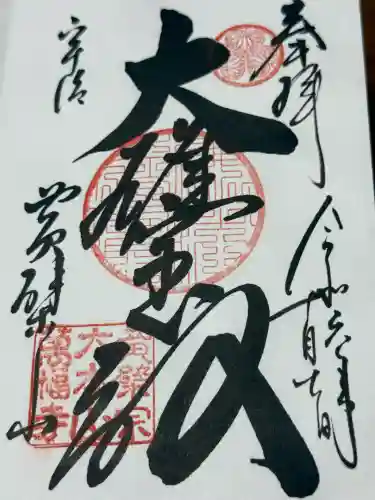 奉拝
令和六年十月十七日
大雄宝殿
宇治
黄檗山
黄檗宗
大本山
萬福寺